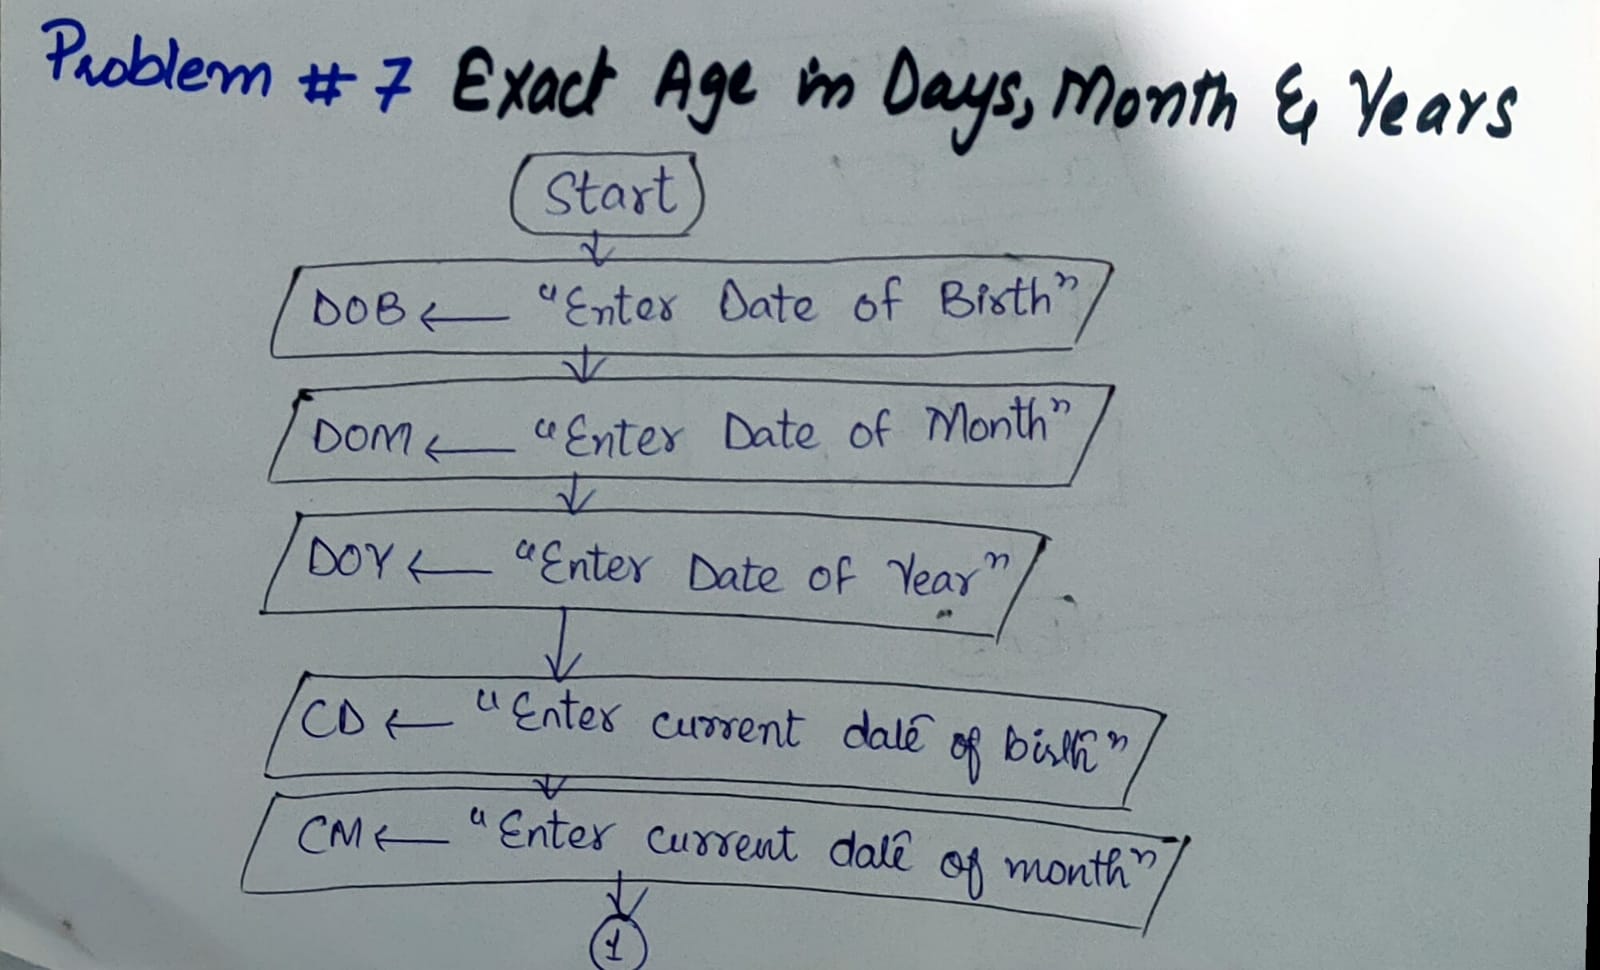 Problem # 7 Exact Age in Days, Month & Years
Start
DOB ← "Enter Date of Birth"
DOM ← "Enter Date of Month"
DOY ← "Enter Date of Year"
CD ← "Enter current date of birth"
CM ← "Enter current date of month"
1